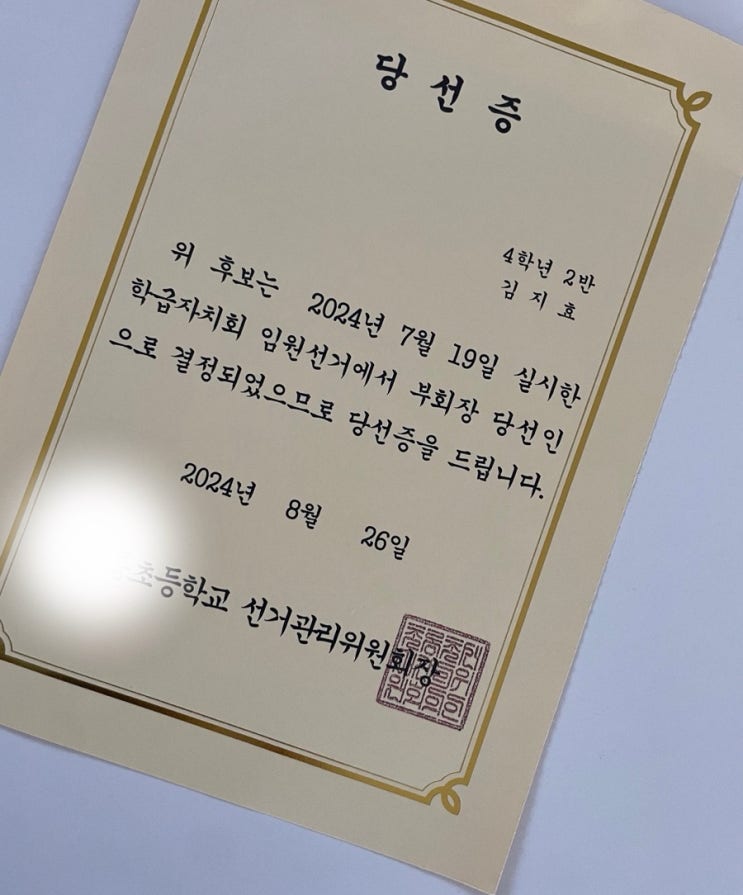 당선증
4학년 2반
김지효
위 후보는 2024년 7월 19일 실시한
학급자치회 임원선거에서 부회장 당선인
으로 결정되었으므로 당선증을 드립니다.
2024년 8월 26일
초등학교 선거관리위원회장